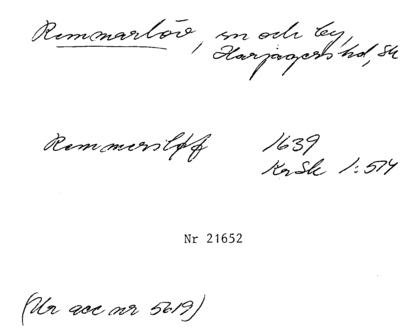 Remmarlöv, sn och by,
Harjagers hd, Sk
Remmersløff 1639
KrSk 1:574
Nr 21652
(Ur acc nr 5619)